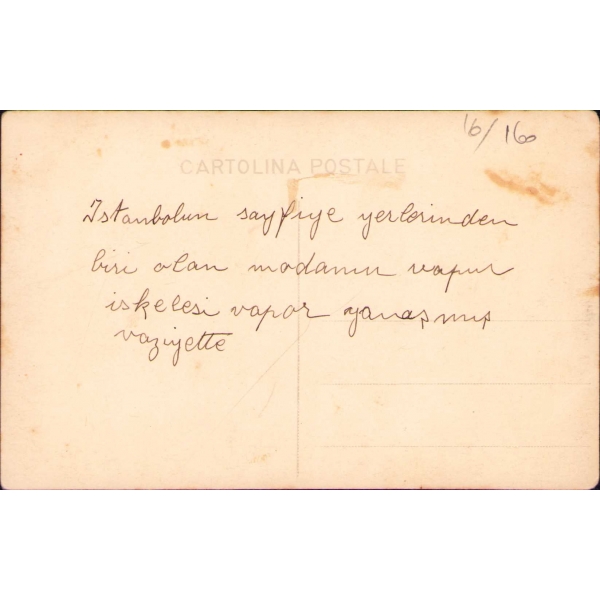 16/160
CARTOLINA POSTALE
Istanbolun sayfiye yerlerinden
biri olan modanın vapur
iskelesi vapor yanaşmış
vaziyette